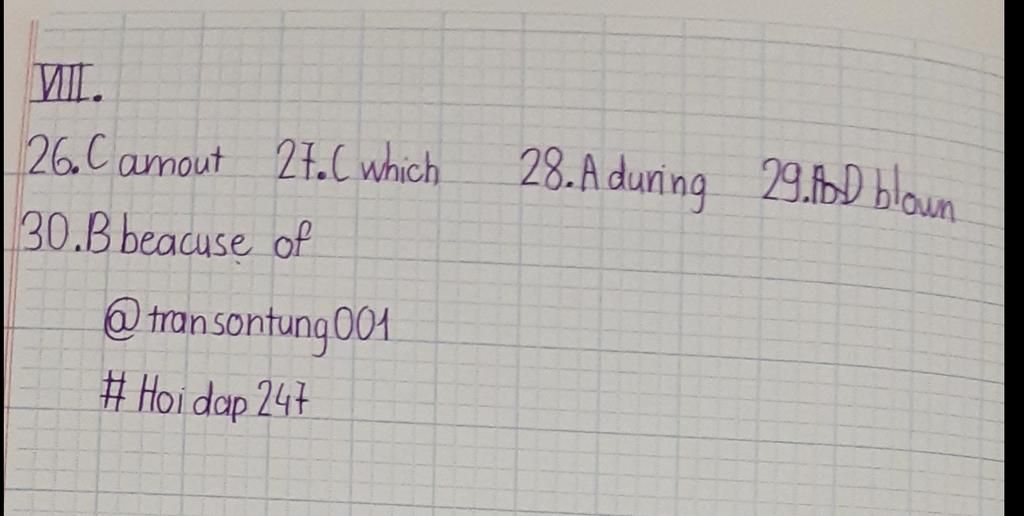 VIII.
26. C amout 27. C which 28. A during 29. D blown
30. B beacuse of
@transontung001
# Hoidap247